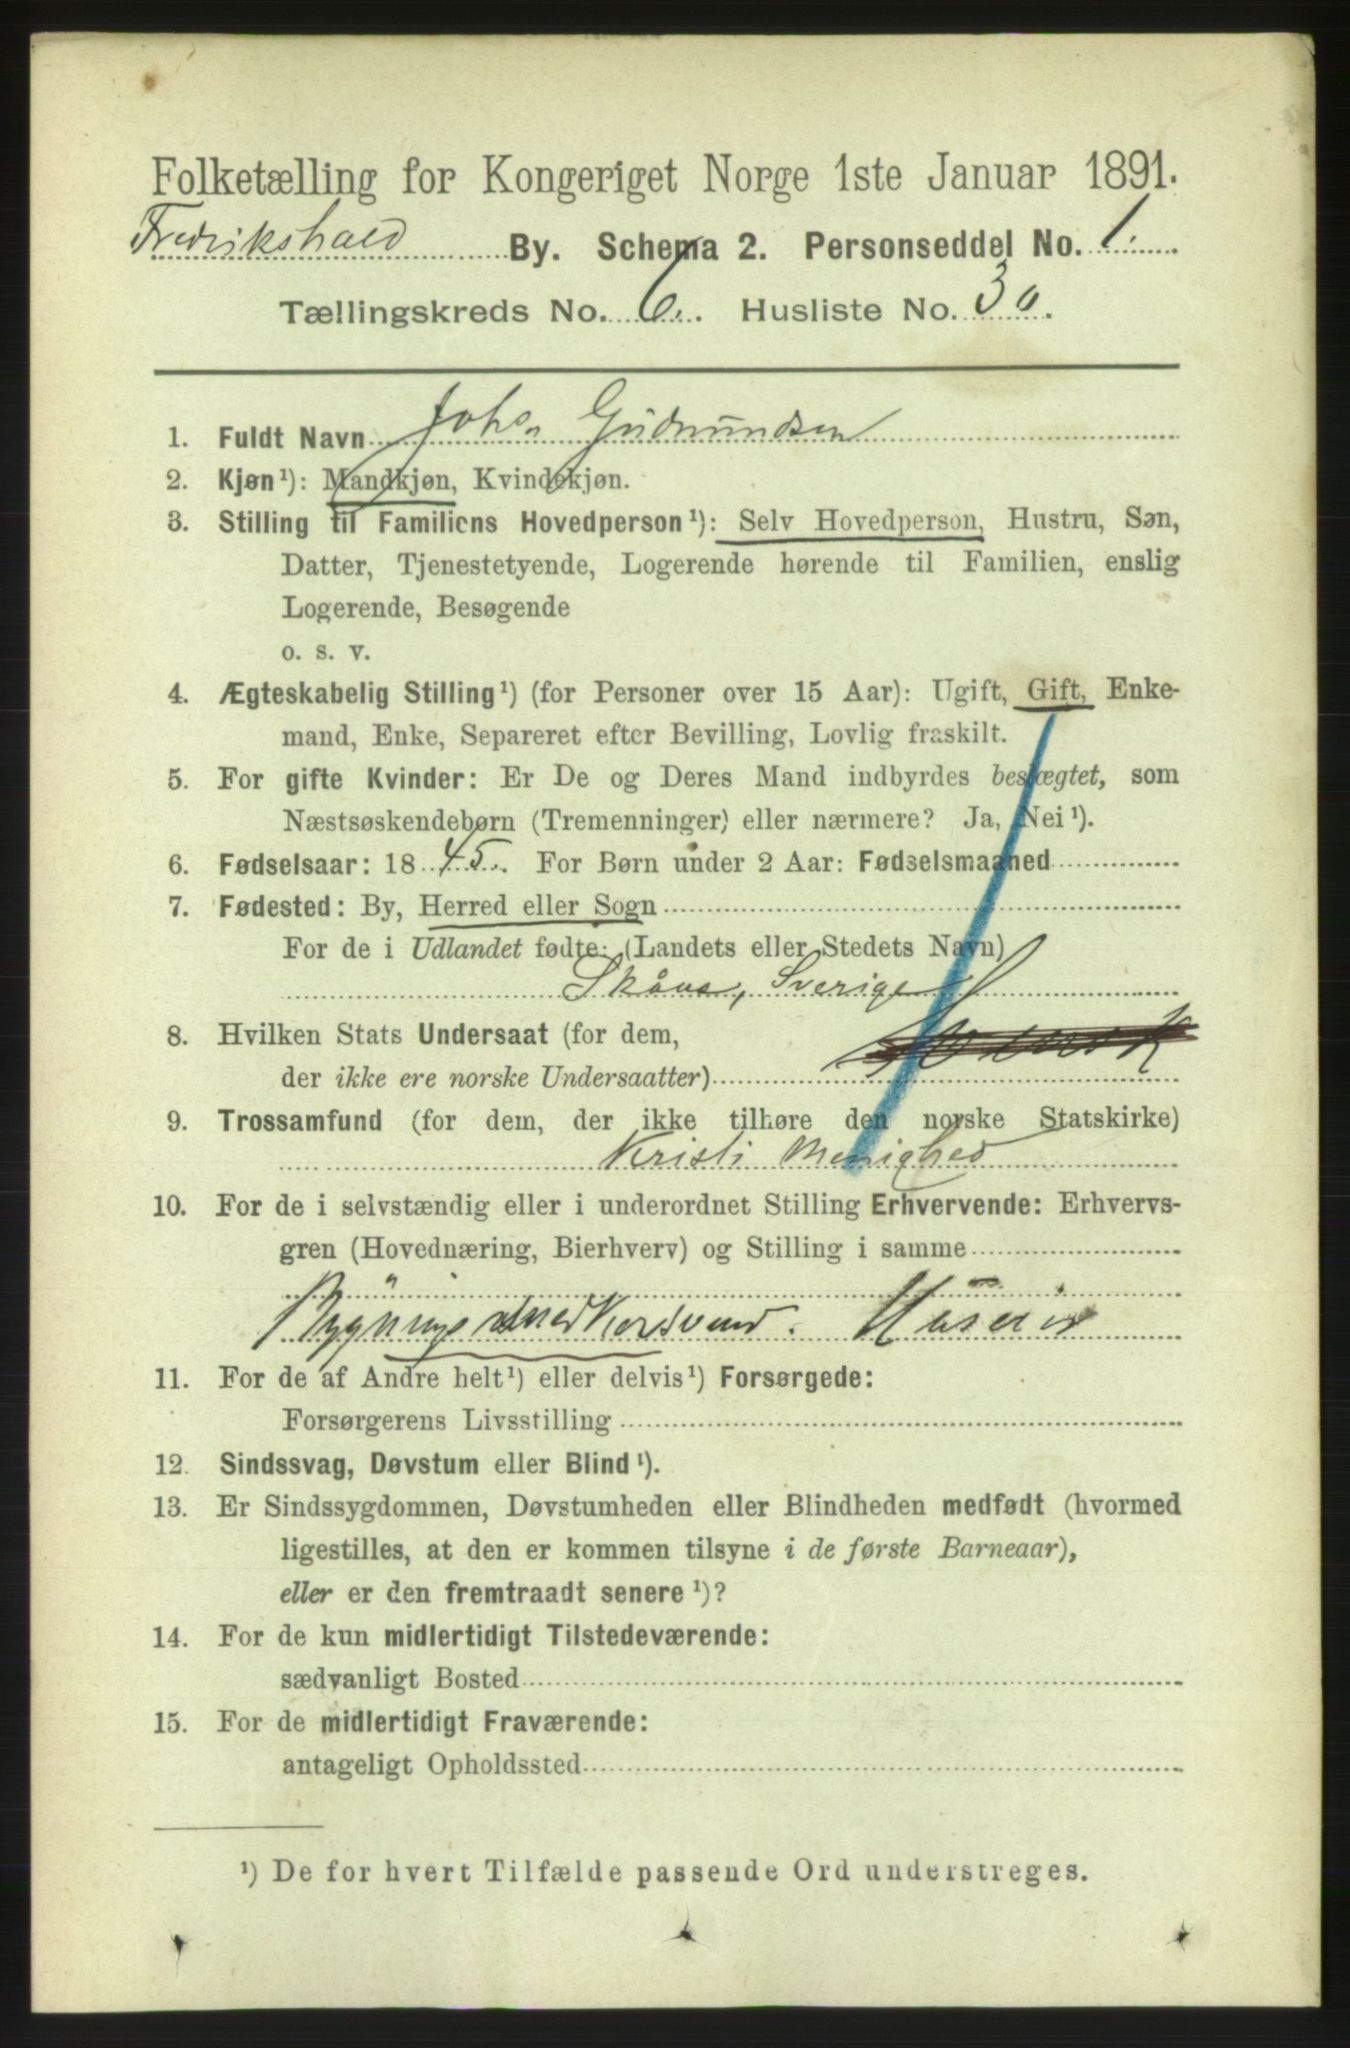 Folketælling for Kongeriget Norge 1ste Januar 1891.
Fredrikshald By. Schema 2. Personseddel No. 1.
Tællingskreds No. 6. Husliste No. 30.
1. Fuldt Navn Johs. Gudmundsen
2. Kjøn¹): Mandkjøn, Kvindekjøn.
3. Stilling til Familiens Hovedperson¹): Selv Hovedperson, Hustru, Søn,
Datter, Tjenestetyende, Logerende hørende til Familien, enslig
Logerende, Besøgende
o. s. v.
4. Ægteskabelig Stilling¹) (for Personer over 15 Aar): Ugift, Gift, Enke-
mand, Enke, Separeret efter Bevilling, Lovlig fraskilt.
5. For gifte Kvinder: Er De og Deres Mand indbyrdes beslægtet, som
Næstsøskendebørn (Tremenninger) eller nærmere? Ja, Nei¹).
6. Fødselsaar: 1845. For Børn under 2 Aar: Fødselsmaaned
7. Fødested: By, Herred eller Sogn
For de i Udlandet fødte: (Landets eller Stedets Navn)
Skåne, Sverige
8. Hvilken Stats Undersaat (for dem,
der ikke ere norske Undersaatter)
9. Trossamfund (for dem, der ikke tilhøre den norske Statskirke)
Kristi Menighed
10. For de i selvstændig eller i underordnet Stilling Erhvervende: Erhvervs-
gren (Hovednæring, Bierhverv) og Stilling i samme
11. For de af Andre helt¹) eller delvis¹) Forsørgede:
Forsørgerens Livsstilling
12. Sindssvag, Døvstum eller Blind¹).
13. Er Sindssygdommen, Døvstumheden eller Blindheden medfødt (hvormed
ligestilles, at den er kommen tilsyne i de første Barneaar),
eller er den fremtraadt senere¹)?
14. For de kun midlertidigt Tilstedeværende:
sædvanligt Bosted
15. For de midlertidigt Fraværende:
antageligt Opholdssted
¹) De for hvert Tilfælde passende Ord understreges.